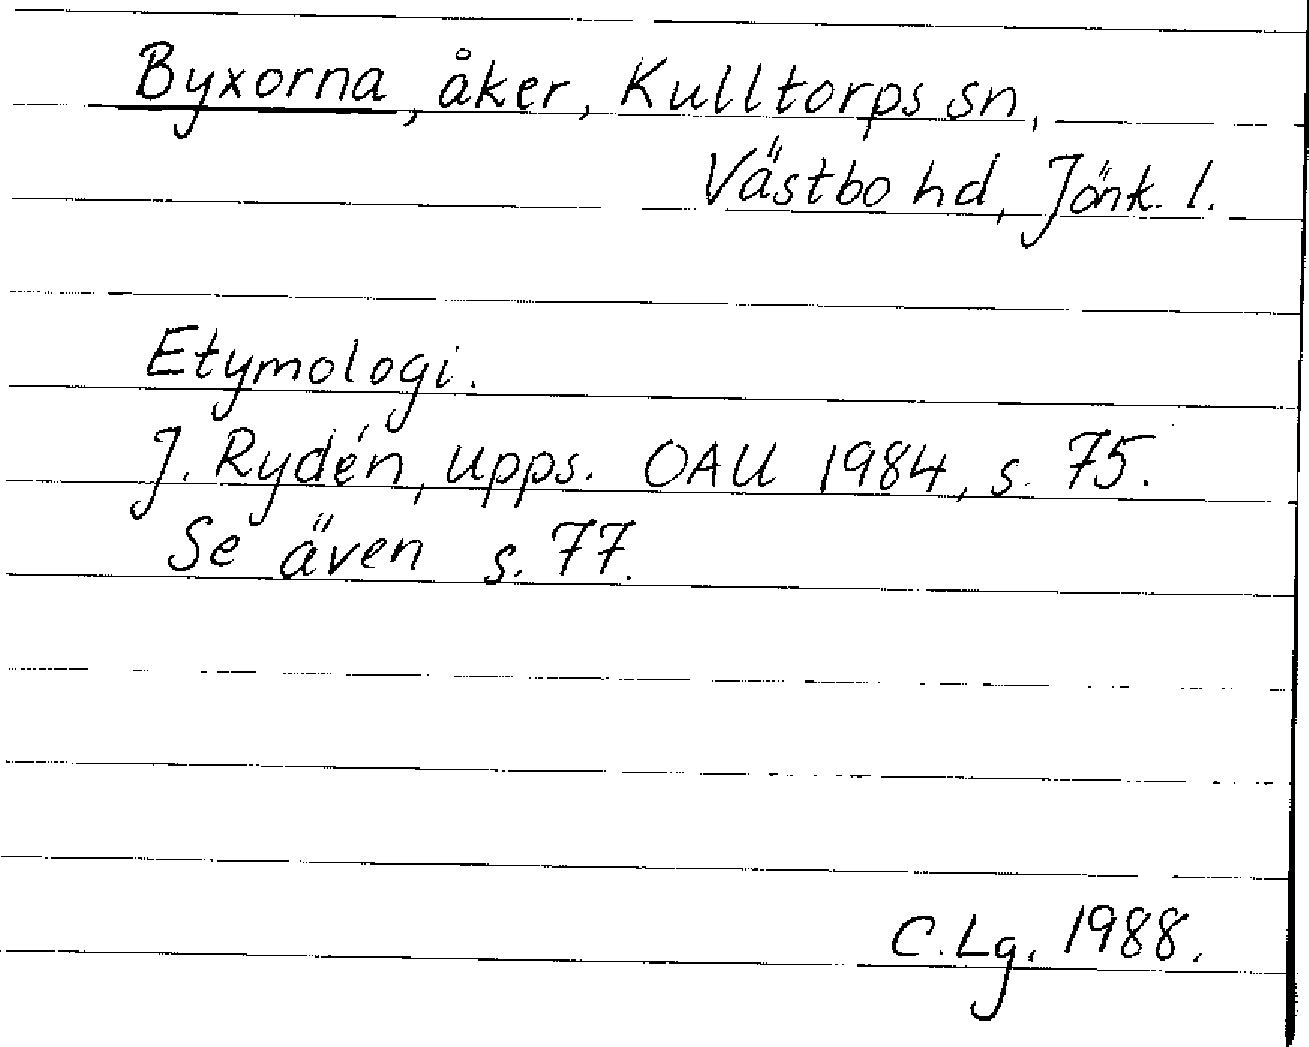 Byxorna, åker, Kulltorps sn,
Västbo hd, Jönk. l.
Etymologi.
J. Rydén, upps. OAU 1984, s. 75.
Se även s. 77.
C. Lg. 1988.